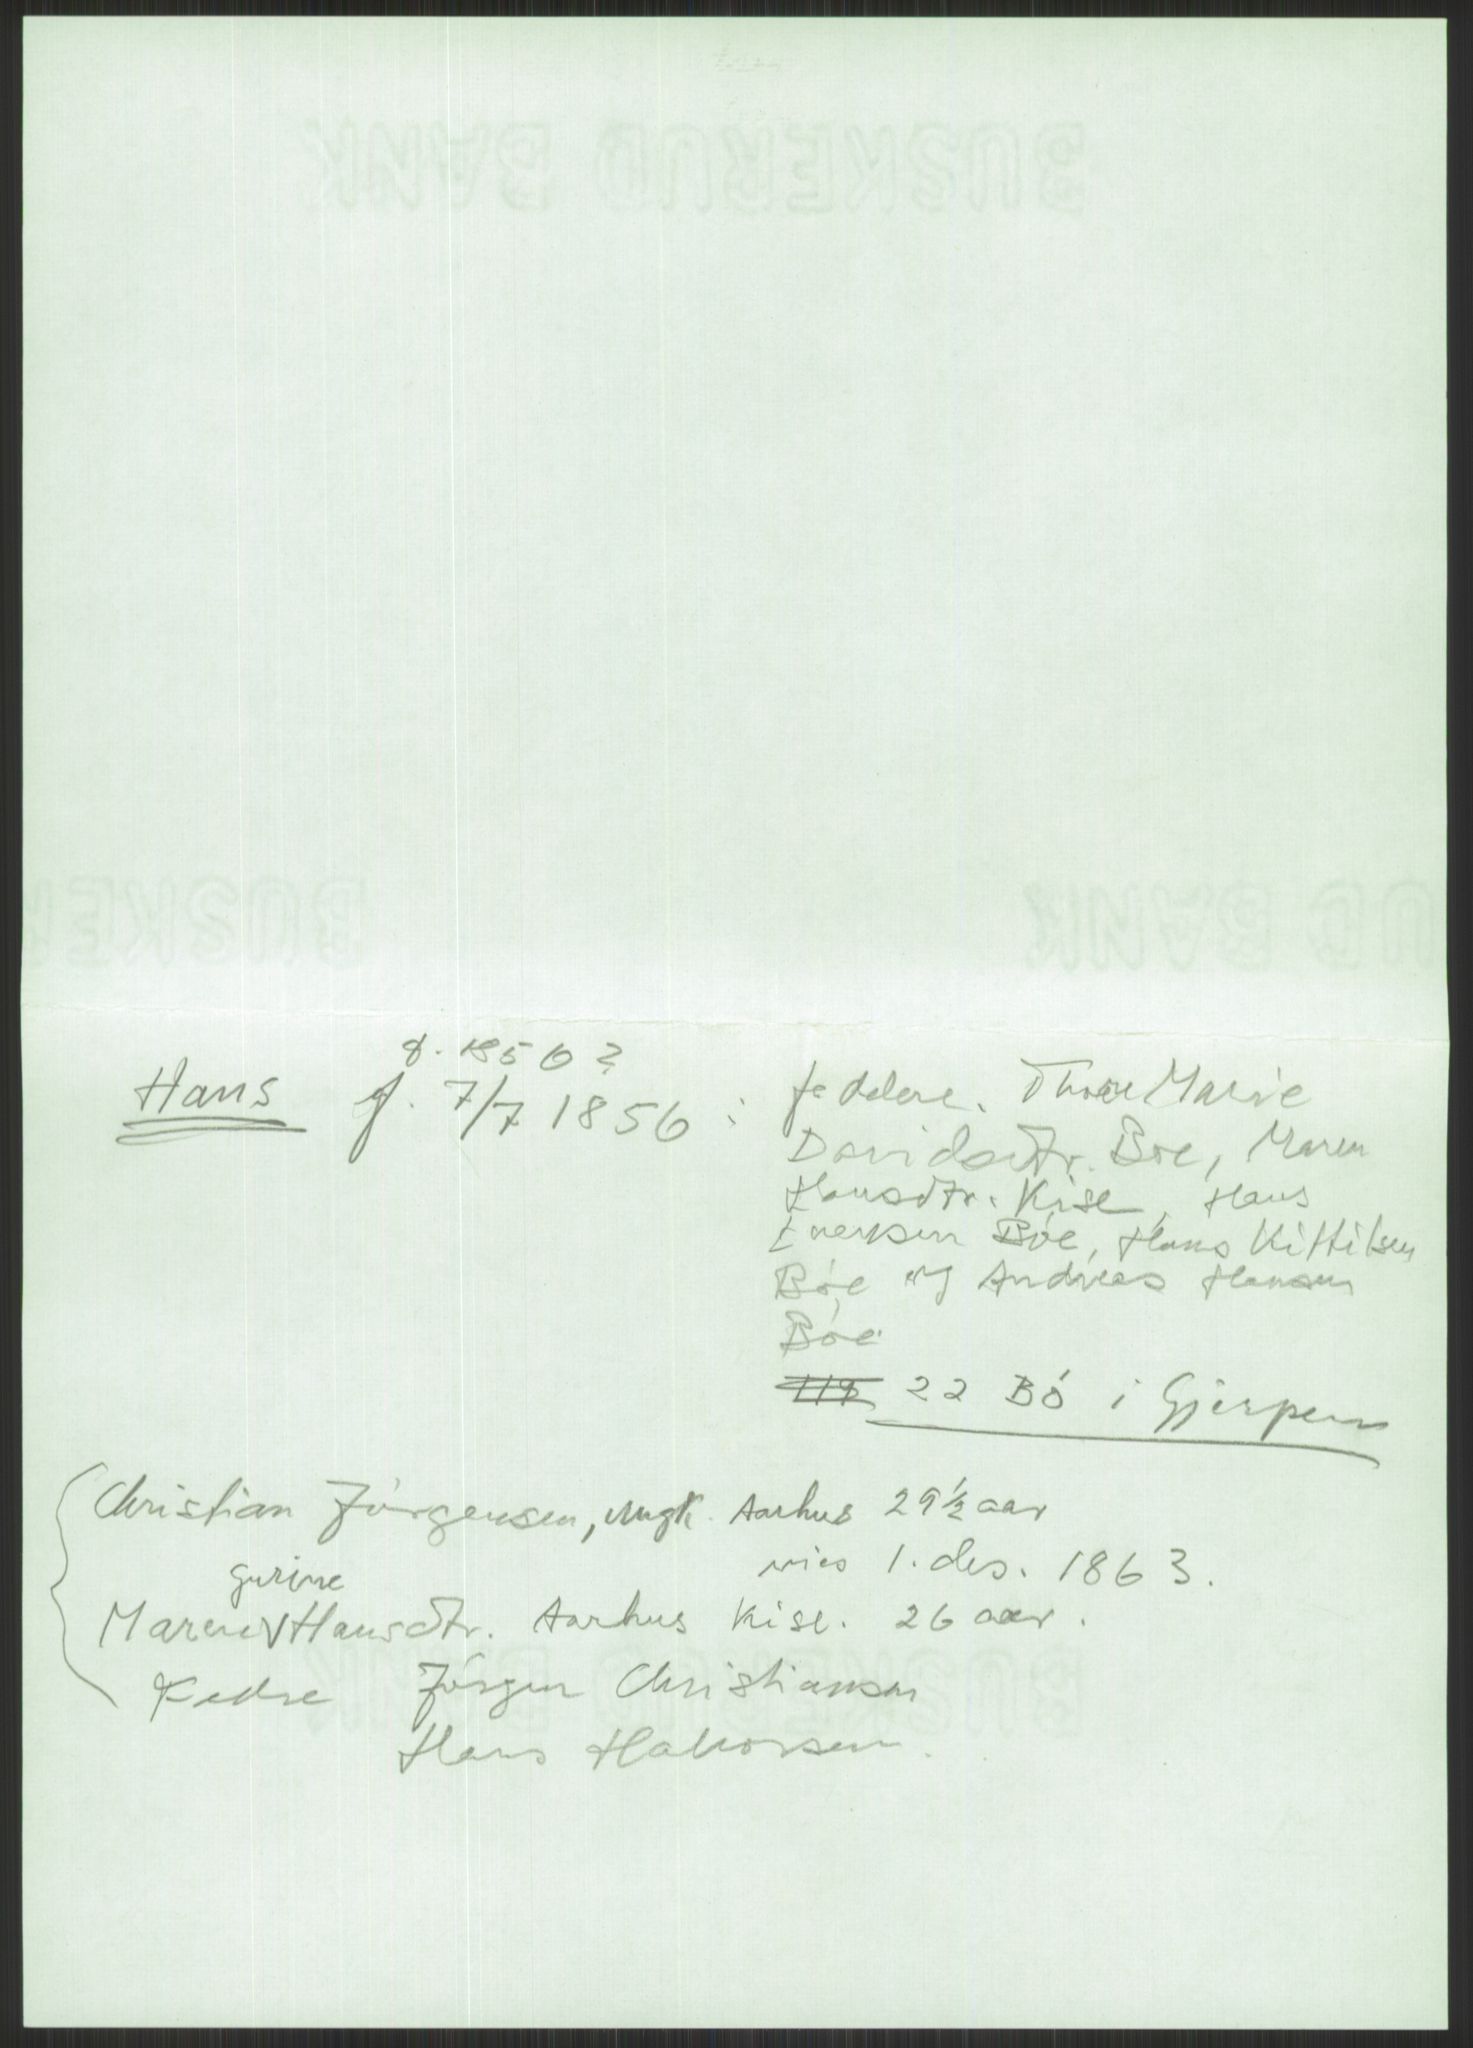 BUSKERUD BANK
BUSKER
UD BANK
d. 1856?
Hans f. 7/7 1856 :
faddere. Thore Marie
Davidsdtr. Bøe, Maren
Hansdtr. Kise, Hans
Iversen Bøe, Hans Kittilsen
Bøe og Andreas Hansen
Bøe
22 Bö i Gjerpen
Christian Jörgensen, Ungk. Aarhus 29½ aar
vies 1. des. 1863.
gurine
Maren Hansdtr. Aarhus Kise. 26 aar.
Fedre Jörgen Christiansen
Hans Halvorsen.
BUSKERUD BANK